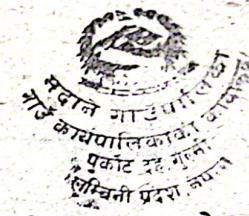 मदाने गाउँपालिका
गाउँ कार्यपालिकाको
पुर्कोट दह, गुल्मी
लुम्बिनी प्रदेश, नेपाल